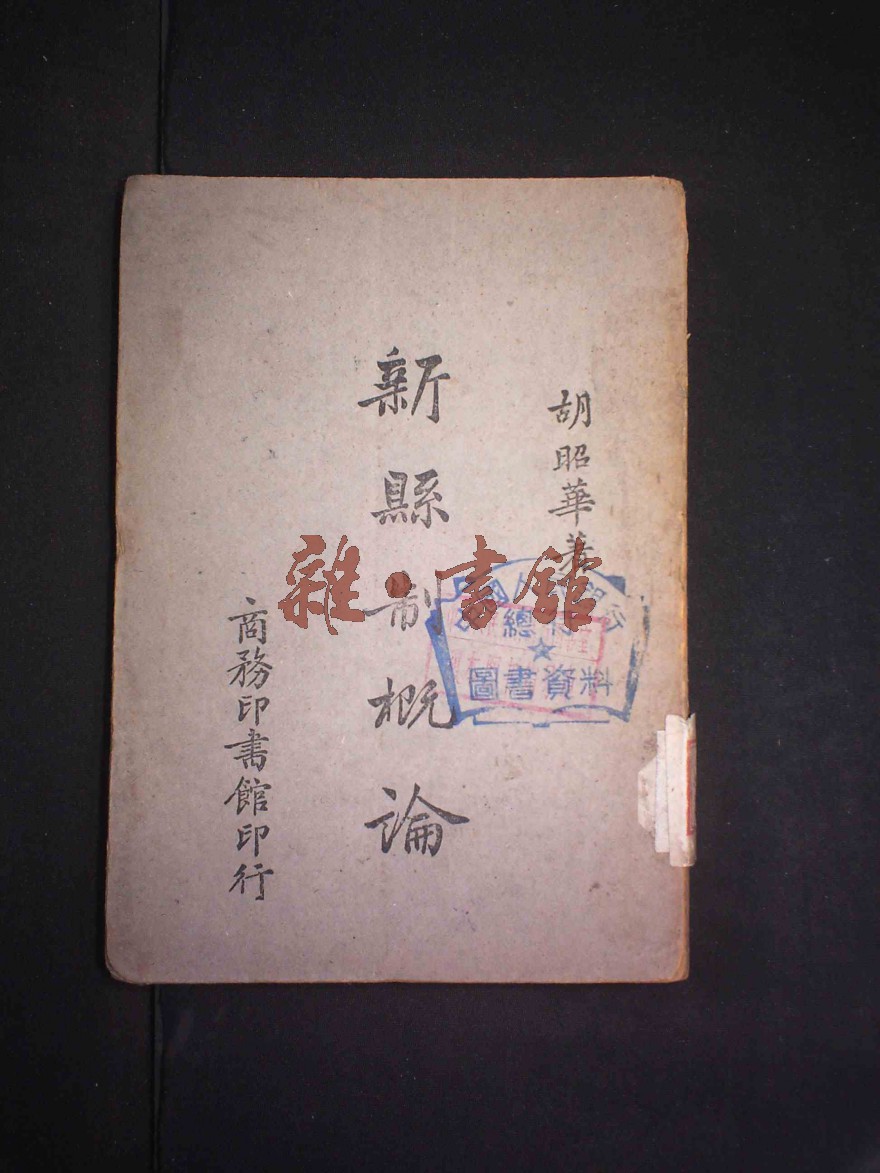 胡昭華著
新縣制概論
商務印書館印行
雜·書館
總
圖書資料